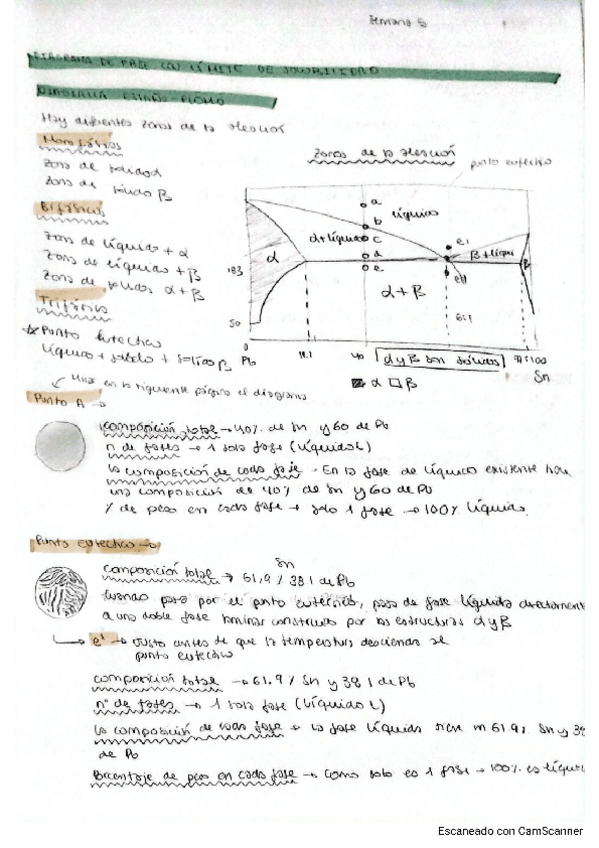 Semana 5
DIAGRAMA DE FASE CON LÍMITE DE SOLUBILIDAD
DIAGRAMA ESTAÑO-PLOMO
Hay diferentes zonas de la aleación
Monofásicas
Zona de solido α
Zona de solido β
Bifásicas
Zona de líquido + α
Zona de líquidos + β
Zona de solidos α+β
Trifásica
Punto Eutectico
Líquido + solido + sólido β
Zonas de la aleación
punto eutectico
a
b
líquido
α+líquido
c
d
e
e1
β+líqui
β
α
183
α+β
50
0
Pb
19.1
40
α y β son sólidos
100
Sn
α β
en la siguiente página el diagrama
Punto A →
composición total → 40% de Sn y 60 de Pb
n de fases → 1 sola fase (Líquida L)
la composición de cada fase - En la fase de líquido existente hay
una composición de 40% de Sn y 60 de Pb
% de peso en cada fase → solo 1 fase → 100% líquida.
Punto eutectico →
Sn
composición total → 61,9% 38 1 de Pb
cuando pasa por el punto eutectico, pasa de fase líquida directamente
a una doble fase laminar construida por las estructuras α y β
e1 → Justo antes de que la temperatura descienda al
punto eutectico
composición total → 61.9% Sn y 38 1 de Pb
nº de fases → 1 sola fase (Líquida L)
la composición de cada fase → la fase líquida tiene un 61.9% Sn y 38
de Pb
Porcentaje de peso en cada fase → como solo es 1 fase → 100% es líqui
Escaneado con CamScanner